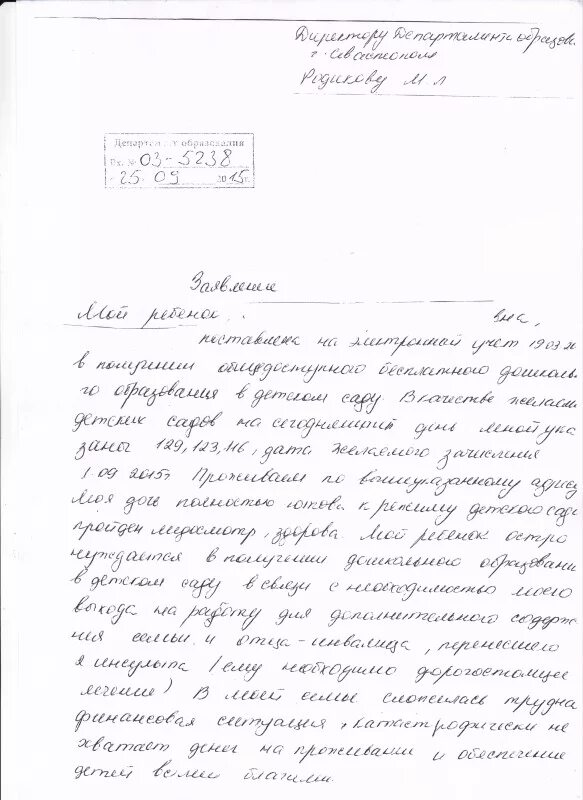 Директору Департамента образова
г. Севастополя
Родикову М Л
Департамент образования
Вх. № 03-5238
"25" 09 2015 г.
Заявление
Мой ребенок вна,
поставлена на электронный учет 19.03.20
в получении общедоступного бесплатного дошколь
го образования в детском саду. В качестве желаем
детских садов на сегодняшний день мной ука
заны 129, 123, 116, дата желаемого зачисления
1.09 2015г Проживаем по вышеуказанному адресу
Моя дочь полностью готова к режиму детского сада
пройден медосмотр, здорова. Мой ребенок остро
нуждается в получении дошкольного образовани
в детском саду в связи с необходимостью моего
выхода на работу для дополнительного содерж
ния семьи и отца-инвалида, перенесшего
инсульта (ему необходимо дорогостоящее
лечение) В моей семье сложилась трудна
финансовая ситуация, катастрофически не
хватает денег на проживании и обеспечение
детей всеми благами.